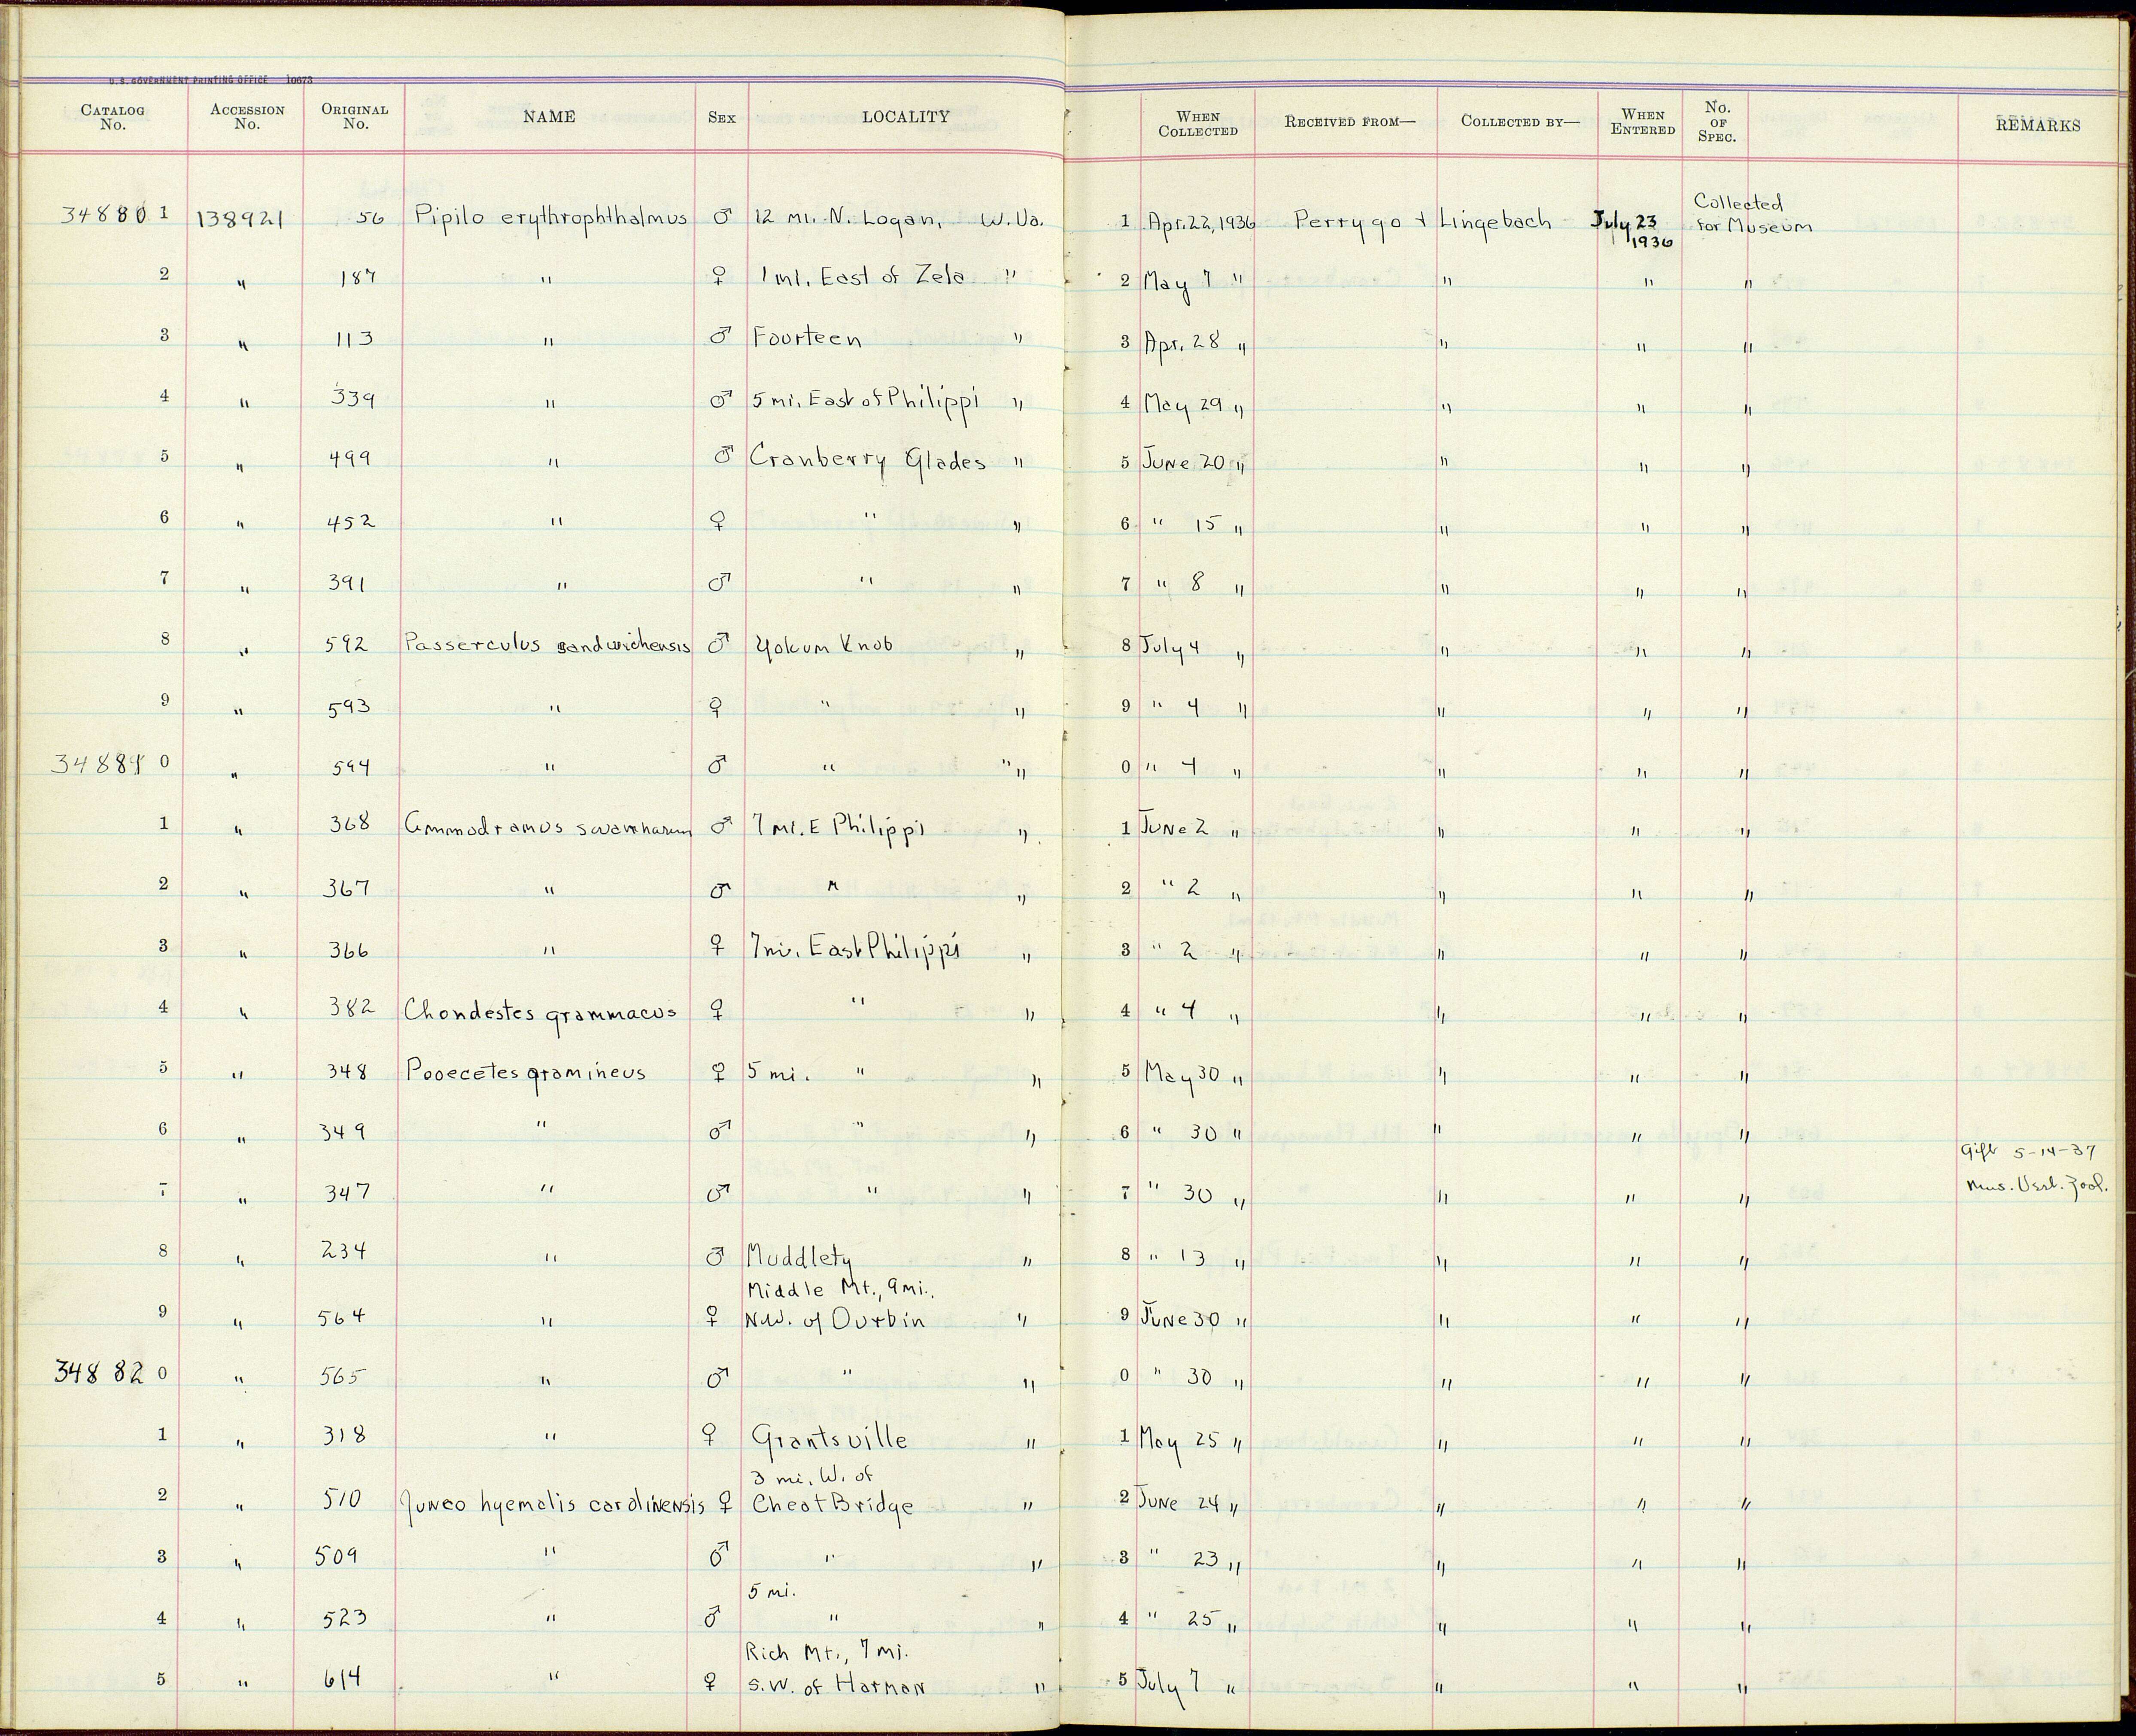 U. S. GOVERNMENT PRINTING OFFICE 10673
CATALOG No. ACCESSION No. ORIGINAL No. NAME SEX LOCALITY WHEN COLLECTED RECEIVED FROM— COLLECTED BY— WHEN ENTERED No. OF SPEC. REMARKS
34880 1 138921 56 Pipilo erythrophthalmus ♂ 12 mi. N. Logan, W. Va. 1 Apr. 22, 1936 Perrygo + Lingebach July 23 1936 Collected for Museum
2 " 187 " ♀ 1 mi. East of Zela " 2 May 7 " " " "
3 " 113 " ♂ Fourteen " 3 Apr. 28 " " " "
4 " 339 " ♂ 5 mi. East of Philippi " 4 May 29 " " " "
5 " 499 " ♂ Cranberry Glades " 5 June 20 " " " "
6 " 452 " ♀ " " 6 " 15 " " " "
7 " 391 " ♂ " " 7 " 8 " " " "
8 " 592 Passerculus sandwichensis ♂ Yokum Knob " 8 July 4 " " " "
9 " 593 " ♀ " " 9 " 4 " " " "
34881 0 " 594 " ♂ " " 0 " 4 " " " "
1 " 368 Ammodramus savannarum ♂ 7 mi. E Philippi " 1 June 2 " " " "
2 " 367 " ♂ " " 2 " 2 " " " "
3 " 366 " ♀ 7 mi. East Philippi " 3 " 2 " " " "
4 " 382 Chondestes grammacus ♀ " " 4 " 4 " " " "
5 " 348 Pooecetes gramineus ♀ 5 mi. " " 5 May 30 " " " "
6 " 349 " ♂ " " 6 " 30 " " " "
7 " 347 " ♂ " " 7 " 30 " " " " Gift 5-14-37 Mus. Vert. Zool.
8 " 234 " ♂ Muddlety " 8 " 13 " " " "
Middle Mt., 9 mi.
9 " 564 " ♀ N.W. of Durbin " 9 June 30 " " " "
34882 0 " 565 " ♂ " " 0 " 30 " " " "
1 " 318 " ♀ Grantsville " 1 May 25 " " " "
3 mi. W. of
2 " 510 Junco hyemalis carolinensis ♀ Cheat Bridge " 2 June 24 " " " "
3 " 509 " ♂ " " 3 " 23 " " " "
5 mi.
4 " 523 " ♂ " " 4 " 25 " " " "
Rich Mt., 7 mi.
5 " 614 " ♀ S.W. of Harman " 5 July 7 " " " "